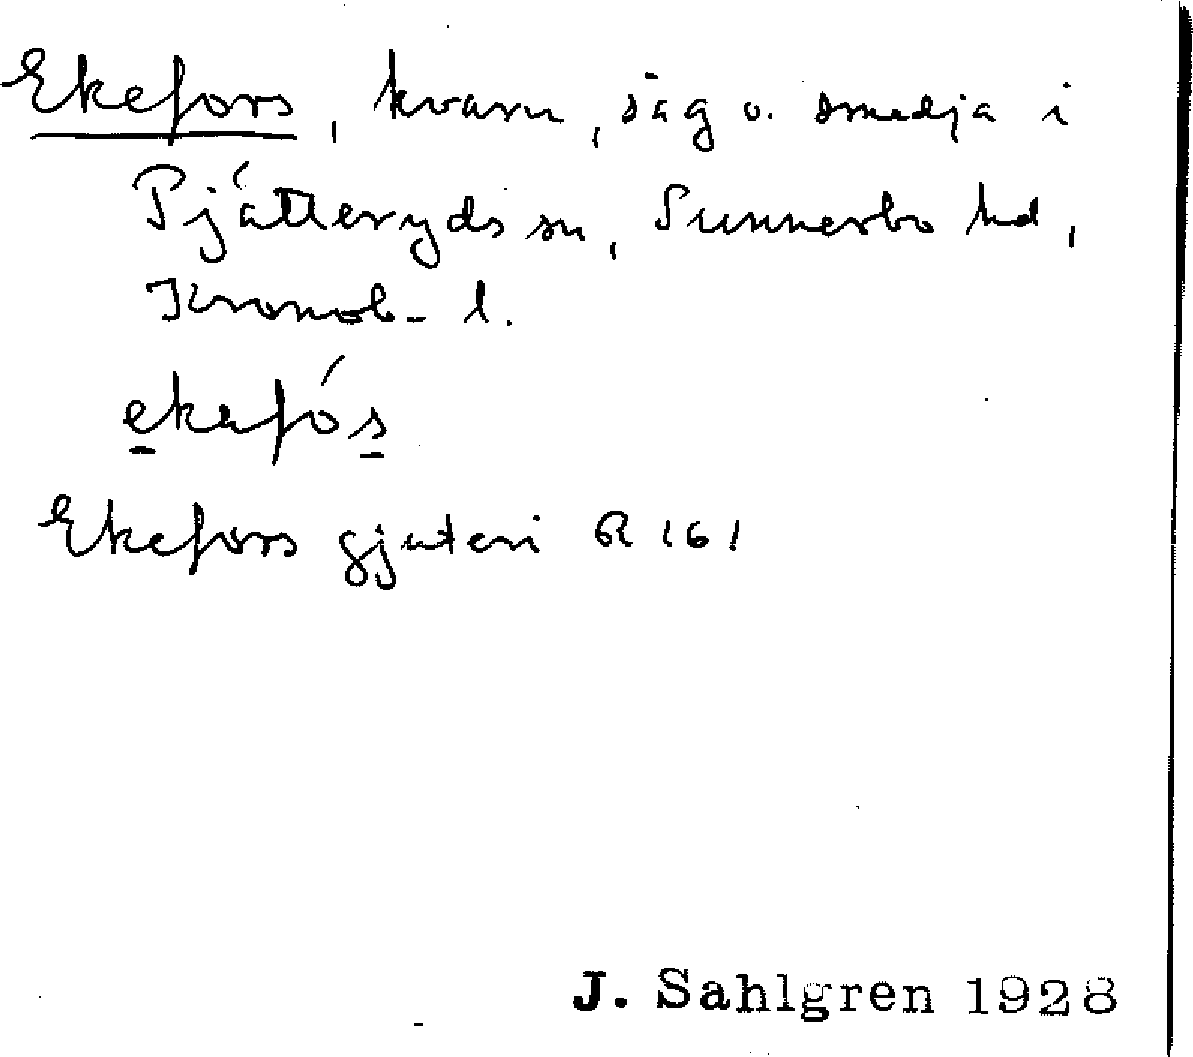 Ekefors, kvarn, såg o. smedja i
Pjätteryds sn, Sunnerbo hd,
Kronob- l.
ekafós
Ekefors gjuteri R 161
J. Sahlgren 1928